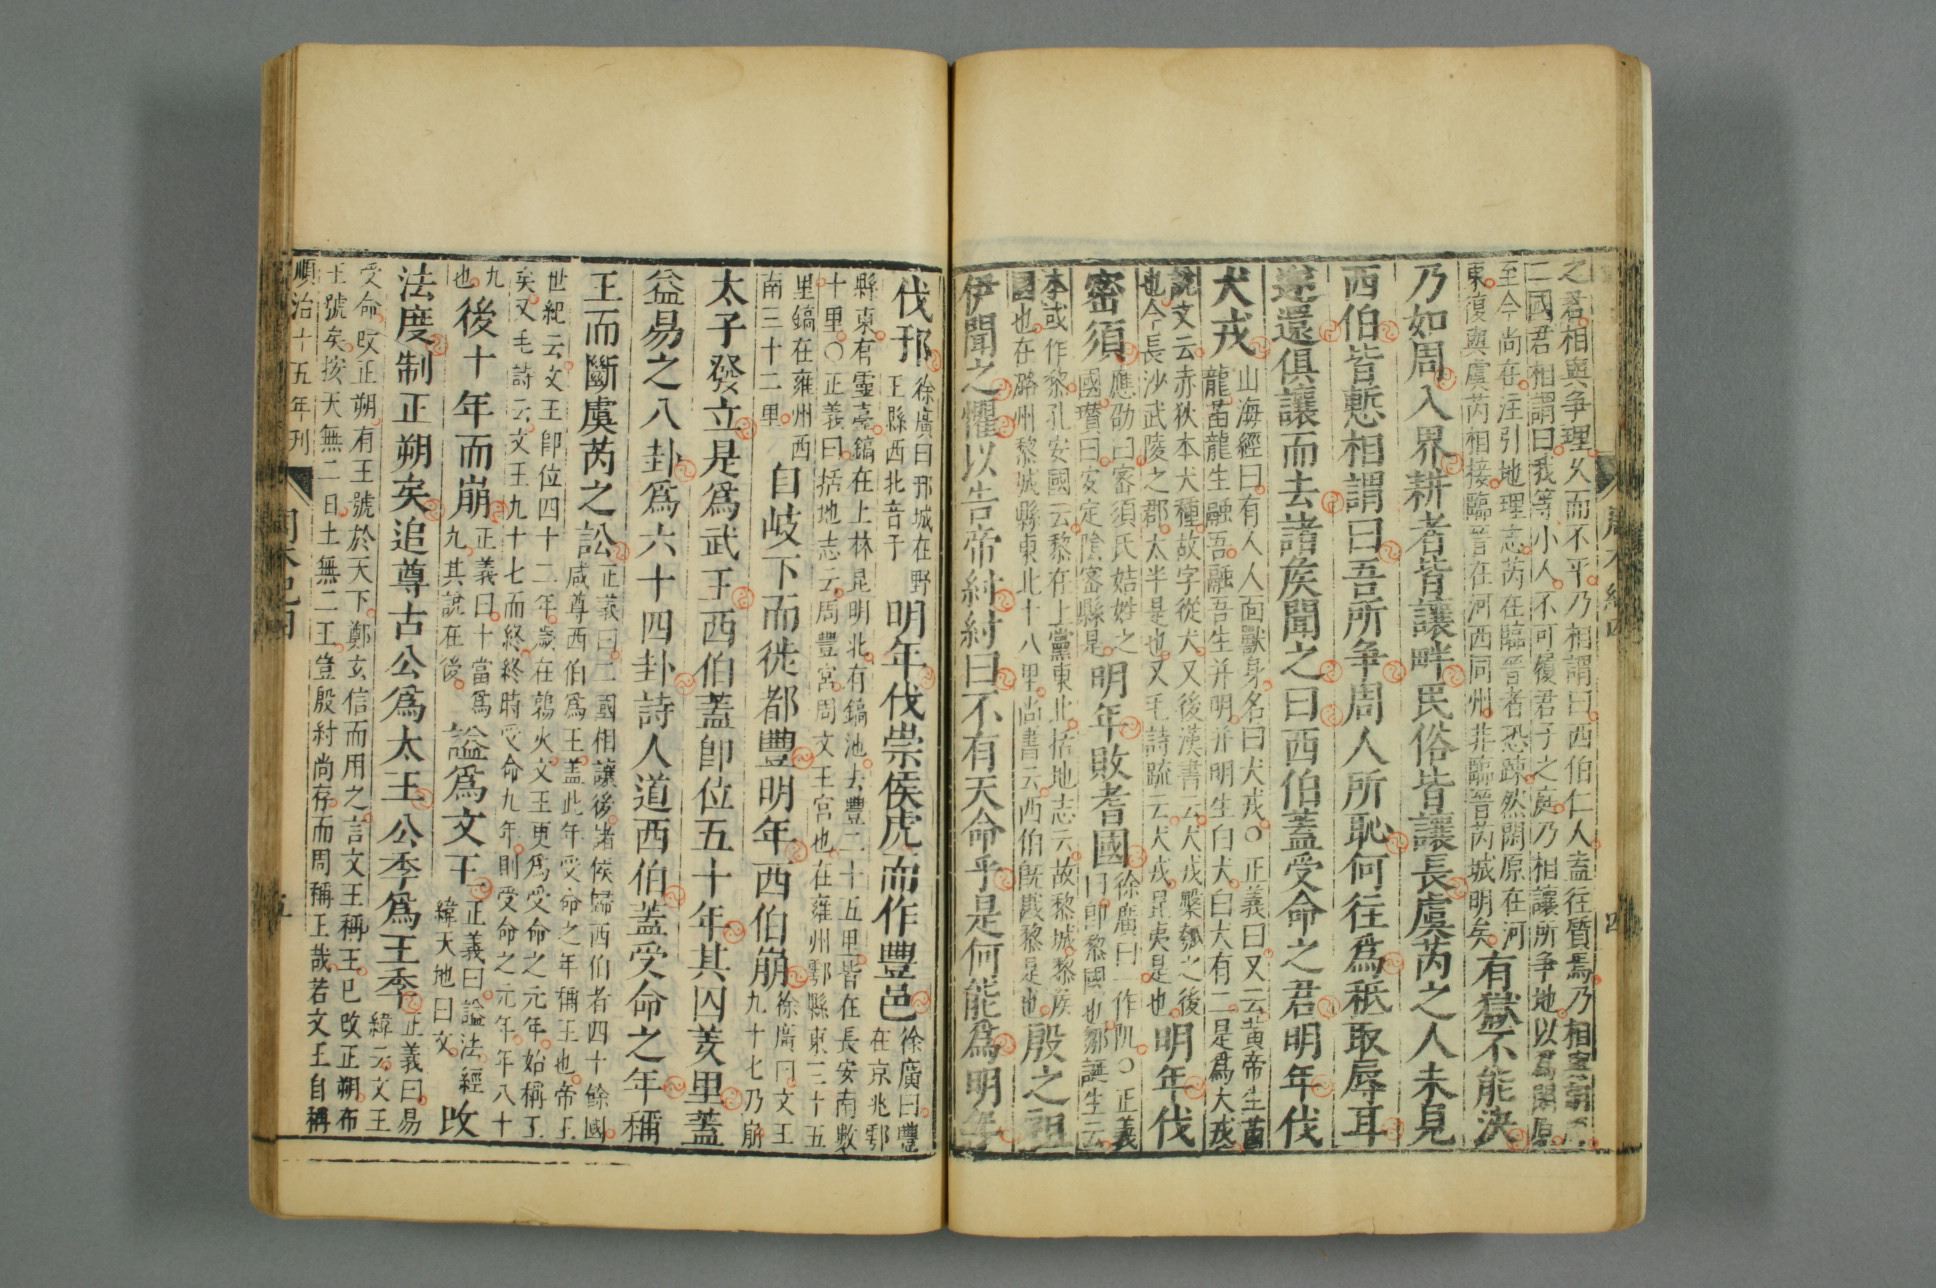 之君相與爭理久而不平乃相謂曰西伯仁人盍往質焉乃相
二國君相謂曰我等小人不可履君子之庭乃相讓所爭地以爲閒原
至今尚在注引地理志芮在臨晉者恐疎然閒原在河
東復與虞芮相接臨晉在河西同州非臨晉芮城明矣有獄不能決
乃如周入界耕者皆讓畔民俗皆讓長虞芮之人未見
西伯皆慙相謂曰吾所爭周人所恥何往爲秖取辱耳
遂還俱讓而去諸侯聞之曰西伯蓋受命之君明年伐
犬戎山海經曰有人人面獸身名曰犬戎○正義曰又云黃帝生苗
龍苗龍生融吾融吾生并明并明生白犬白犬有二是爲犬戎
說文云赤狄本犬種故字從犬又後漢書云犬戎槃瓠之後
也今長沙武陵之郡太半是也又毛詩疏云犬戎昆夷是也明年伐
密須應劭曰密須氏姞姓之
國瓚曰安定陰密縣是明年敗耆國徐廣曰一作阢○正義
曰即黎國也鄒誕生云
本或作黎孔安國云黎在上黨東北括地志云故黎城黎侯
國也在潞州黎城縣東北十八里尚書云西伯旣戡黎是也殷之祖
伊聞之懼以告帝紂紂曰不有天命乎是何能爲明年
周本紀四
四
伐邘徐廣曰邘城在野
王縣西北音于明年伐崇侯虎而作豐邑徐廣曰豐
在京兆鄠
縣東有靈臺鎬在上林昆明北有鎬池去豐二十五里皆在長安南數
十里○正義曰括地志云周豐宮周文王宮也在雍州鄠縣東三十五
里鎬在雍州西
南三十二里自岐下而徙都豐明年西伯崩徐廣曰文王
九十七乃崩
太子發立是爲武王西伯蓋卽位五十年其囚羑里蓋
益易之八卦爲六十四卦詩人道西伯蓋受命之年稱
王而斷虞芮之訟正義曰二國相讓後諸侯歸西伯者四十餘國
咸尊西伯爲王蓋此年受命之年稱王也帝王
世紀云文王卽位四十二年歲在鶉火文王更爲受命之元年始稱王
矣又毛詩云文王九十七而終終時受命九年則受命之元年年八十
九
也後十年而崩正義曰十當爲
九其說在後謚爲文王正義曰謚法經
緯天地曰文改
法度制正朔矣追尊古公爲太王公季爲王季正義曰易
緯云文王
受命改正朔有王號於天下鄭玄信而用之言文王稱王已改正朔布
王號矣按天無二日土無二王豈殷紂尚存而周稱王哉若文王自稱
順治十五年刊
周本紀四
五